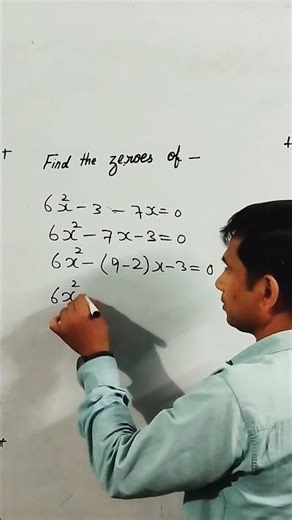 Find the zeroes of -
6x² - 3 - 7x = 0
6x² - 7x - 3 = 0
6x² - (9-2)x - 3 = 0
6x²